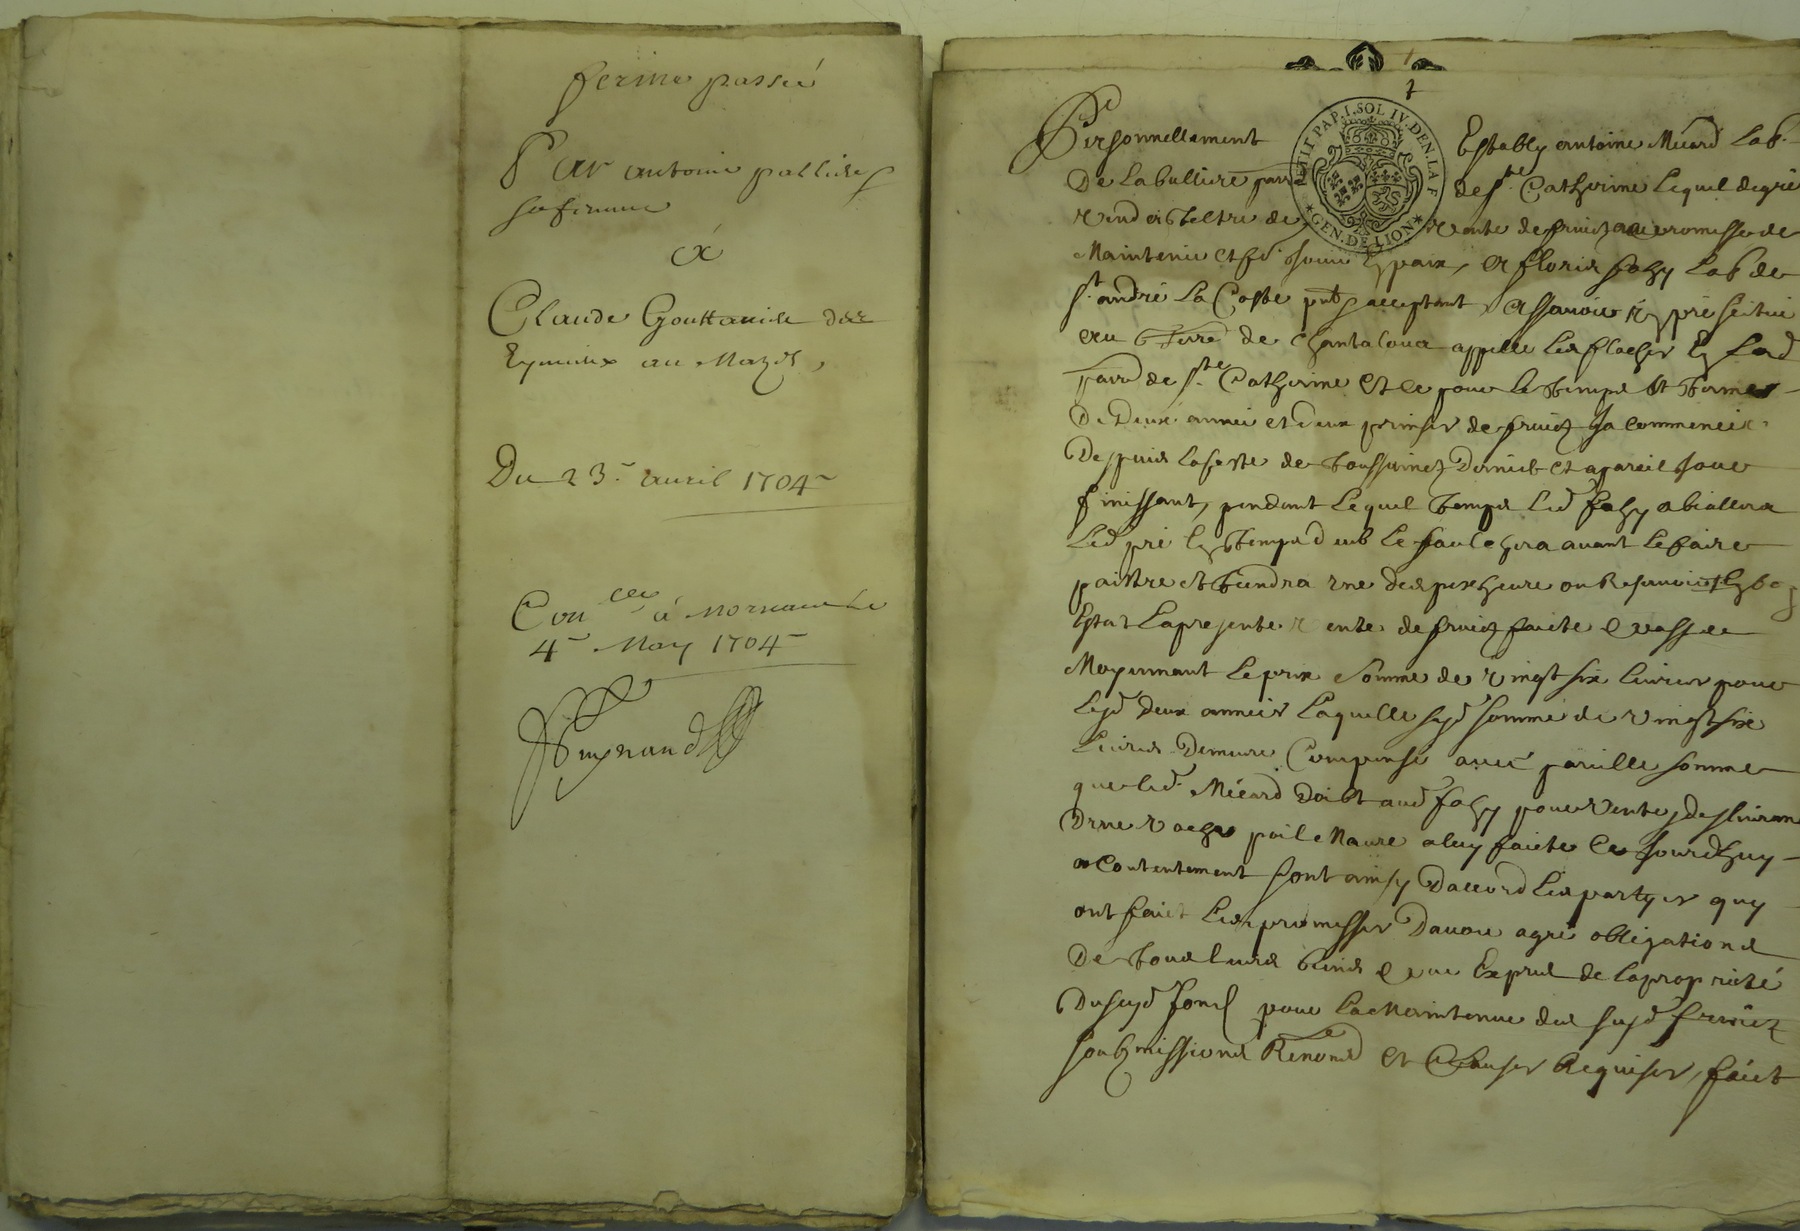 ferme passée
Par antoine pallides
sa femme
à
Claude Gouttaude des
au Mazel
Du 23e auril 1704
Con^llé à Mornant le
4e May 1704
Personnellement Estably antoine Méard Lab.
De Labulliere parre de s^te Catherine lequel de gré
vend à tiltre de vente de fruicts avec promesse de
Maintenir et f^e Jouir En paix, à fleurie fahy Lab de
s^t andré La Coste pnt & acceptant, Assauoir Vn pré scitué
au Terre de Chantaloue appellé Les flaches En lad
parre de s^te Catherine Et ce pour le temps Et terme
De Deux année et deux prinses de fruicts Ja commencée
Despuis la feste de toussainctz Dernier et a pareil Jour
finissant, pendant lequel temps led fahy abiallera
Led pré En temps deub Le fauchera auant le faire
paistre et tiendra une des pescheure ou Reservoir En bon
Estat La presente vente de fruicts faicte & passée
Moyennant le prix & somme de vingt six liures pour
lesd deux années Laquelle susd somme de vingt six
liures Demeure Compensé auec pareille somme
que led Méard Doibt aud fahy pour vente, & desliurance
D'vne vache poil Maure a luy faicte ce Jourdhuy
a Contentement sont ainsy D'accord Les partyes quy
ont faict Les promesses D'auoir agré obligations
De tous leurs biens & au Exprès de la proprieté
Du susd fond pour la Maintenue des susd fruicts
soubzmissions Renond Et Clauses Requises, faict
MII PAP. I. SOL IV. DEN. LA F
GEN. DE LION